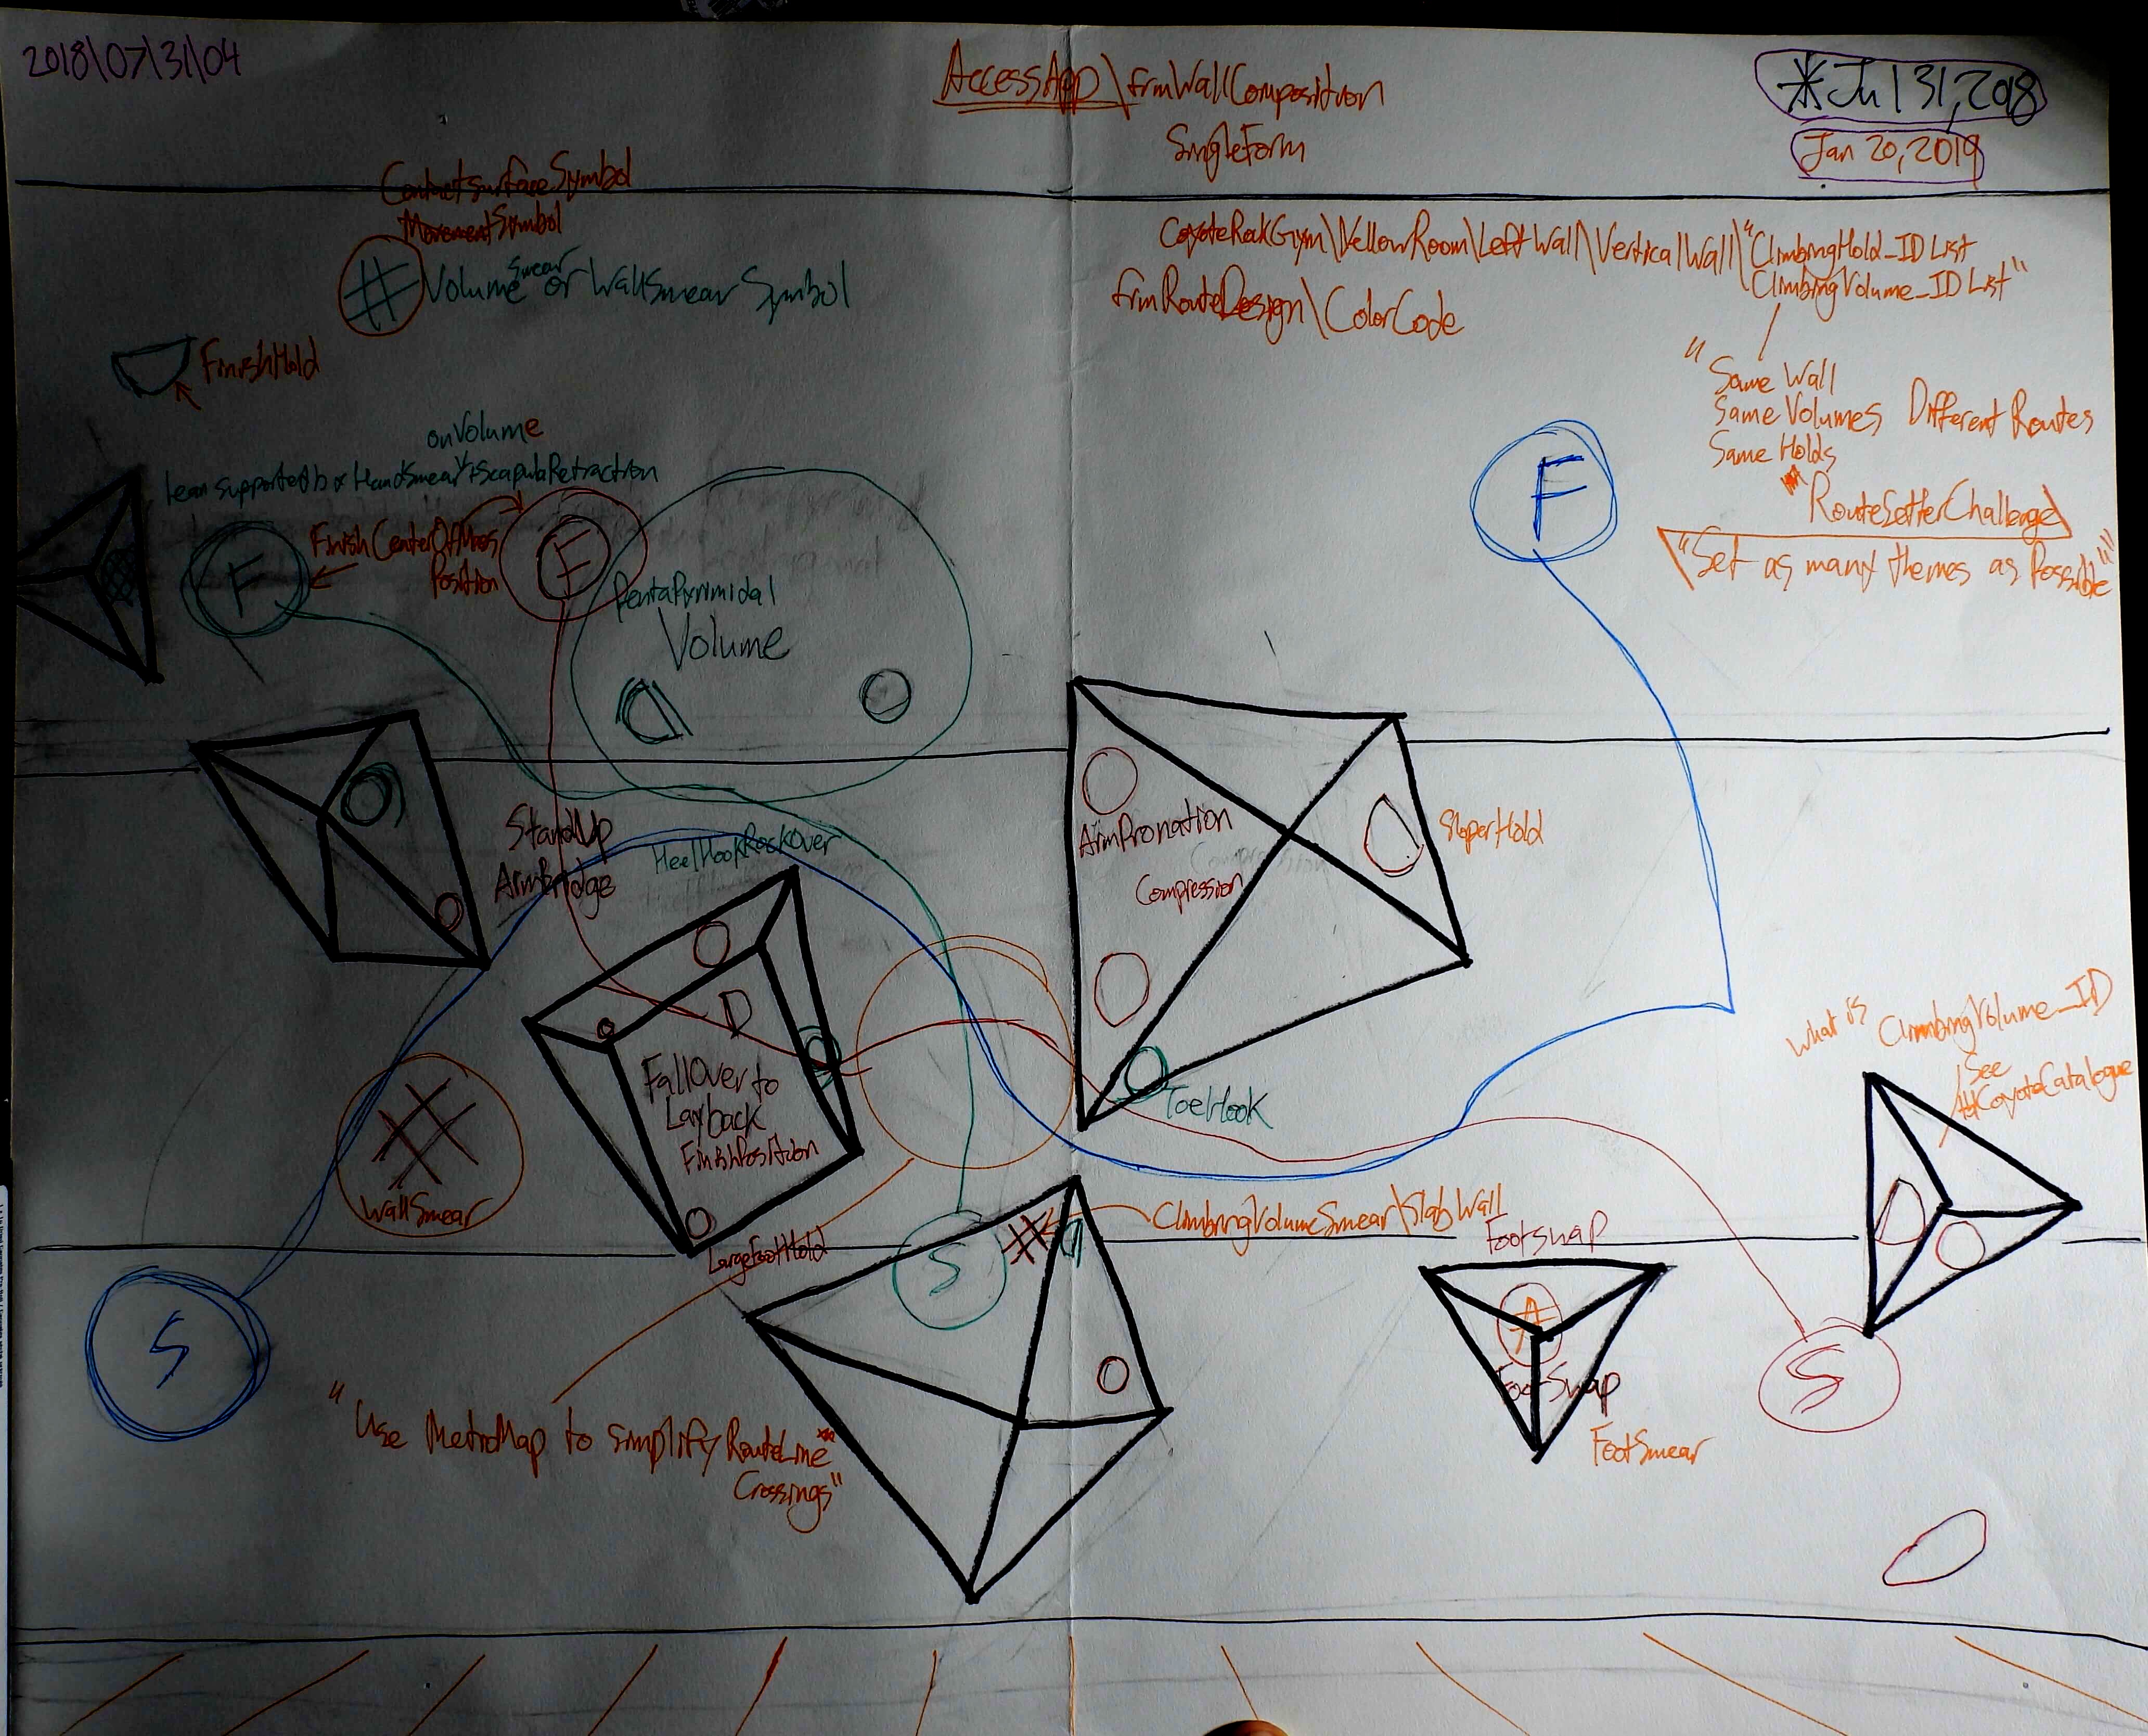 2018\07\31\04
AccessApp\frmWallComposition
SingleForm
*Jul 31, 2018
Jan 20, 2019
ContactSurfaceSymbol
MovementSymbol
# Volume Smear or WallSmear Symbol
CoyoteRockGym\YellowRoom\LeftWall\VerticalWall\"ClimbingHold_ID List
ClimbingVolume_ID List"
frmRouteDesign\ColorCode
FinishHold
"Same Wall
Same Volumes
Same Holds
Different Routes
RouteSetterChallenge
"Set as many themes as Possible""
onVolume
lean supported by HandSmear + ScapulaRetraction
F
FinishCenterOfMass
Position
F
F
PentaPyrimidal
Volume
StandUp
ArmBridge
HeelHookRockOver
ArmPronation
Compression
SloperHold
FallOver to
Layback
FinishPosition
ToeHook
What is ClimbingVolume_ID
See
CoyoteCatalogue
WallSmear
LargeFootHold
S
ClimbingVolumeSmear\SlabWall
Footswap
S
A
FootSwap
S
FootSmear
"Use MetroMap to simplify RouteLine
Crossings"